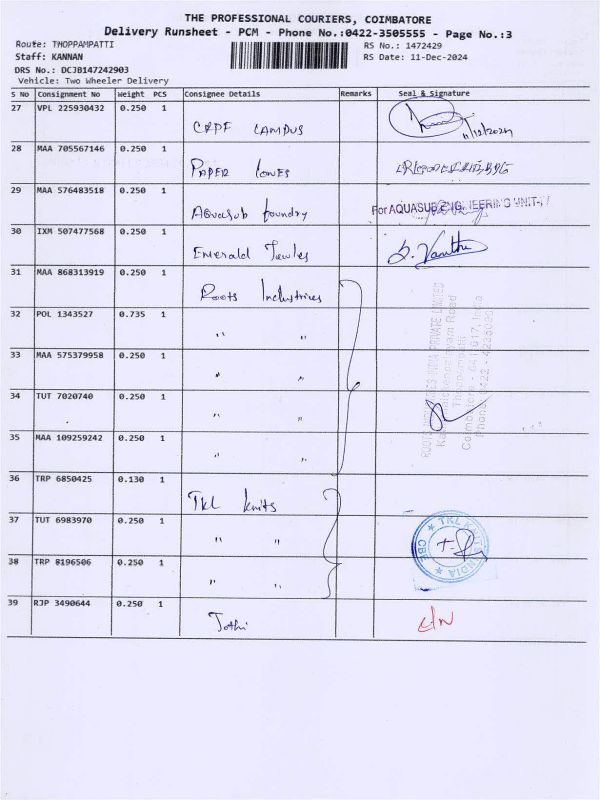 THE PROFESSIONAL COURIERS, COIMBATORE
Delivery Runsheet - PCM - Phone No.:0422-3505555 - Page No.:3
Route: THOPPAMPATTI
RS No.: 1472429
Staff: KANNAN
RS Date: 11-Dec-2024
DRS No.: DCJB147242903
Vehicle: Two Wheeler Delivery
S No Consignment No Weight PCS Consignee Details Remarks Seal & Signature
27 VPL 225930432 0.250 1
CRPF CAMPUS 11/12/2024
28 MAA 705567146 0.250 1
PAPER
29 MAA 576483518 0.250 1
Aquasub foundry For AQUASUB ENGINEERING UNIT-
30 IXM 507477568 0.250 1
Emerald
31 MAA 868313919 0.250 1
Roots Industries
32 POL 1343527 0.735 1
" "
33 MAA 575379958 0.250 1
" "
34 TUT 7020740 0.250 1
" "
35 MAA 109259242 0.250 1
" "
ROOTS INDUSTRIES INDIA PRIVATE LIMITED
Thoppampatti
Coimbatore - 641 017, India
36 TRP 6850425 0.130 1
TKL knits
37 TUT 6983970 0.250 1
" "
TKL KNITS INDIA
CBE
38 TRP 8196506 0.250 1
" "
39 RJP 3490644 0.250 1
Jothi